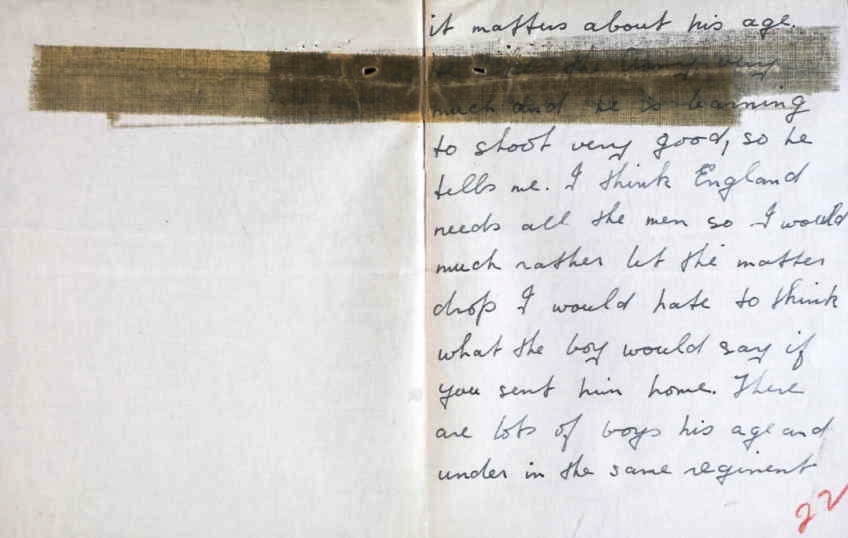 it matters about his age.
the Army very
much and he is learning
to shoot very good, so he
tells me. I think England
needs all the men so I would
much rather let the matter
drop I would hate to think
what the boy would say if
you sent him home. There
are lots of boys his age and
under in the same regiment
22